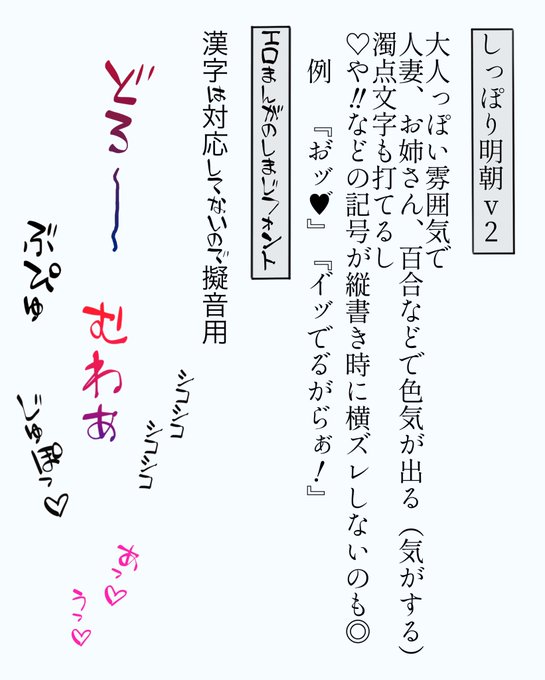 しっぽり明朝 v2
大人っぽい雰囲気で
人妻、お姉さん、百合などで色気が出る（気がする）
濁点文字も打てるし
♡や!!などの記号が縦書き時に横ズレしないのも◎
例　『お゙ッ゙♥』『イ゙ッ゙でる゙がら゙ぁ゙！』
エロまんがのしまじフォント
漢字は対応してないので擬音用
どろ〜
むわぁ
シコシコ
シコシコ
ぶぴゅ
じゅぽっ♡
あっ♡
うっ♡